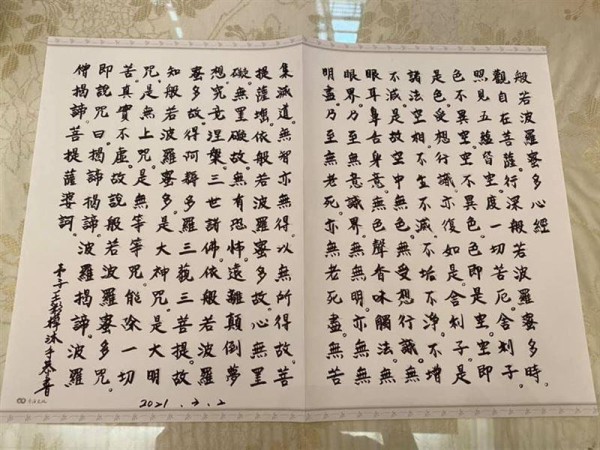 般若波羅蜜多心經
觀自在菩薩。行深般若波羅蜜多時。
照見五蘊皆空。度一切苦厄。舍利子。
色不異空。空不異色。色即是空。空即
是色。受想行識。亦復如是。舍利子。是
諸法空相。不生不滅。不垢不淨。不增
不減。是故空中無色。無受想行識。無
眼耳鼻舌身意。無色聲香味觸法。無
眼界。乃至無意識界。無無明。亦無無
明盡。乃至無老死。亦無老死盡。無苦
集滅道。無智亦無得。以無所得故。菩
提薩埵。依般若波羅蜜多故。心無罣
礙。無罣礙故。無有恐怖。遠離顛倒夢
想。究竟涅槃。三世諸佛。依般若波羅
蜜多故。得阿耨多羅三藐三菩提。故
知般若波羅蜜多。是大神咒。是大明
咒。是無上咒。是無等等咒。能除一切
苦。真實不虛。故說般若波羅蜜多咒。
即說咒曰。揭諦揭諦。波羅揭諦。波羅
僧揭諦。菩提薩婆訶。
弟子王彩樺沐手恭書
2021